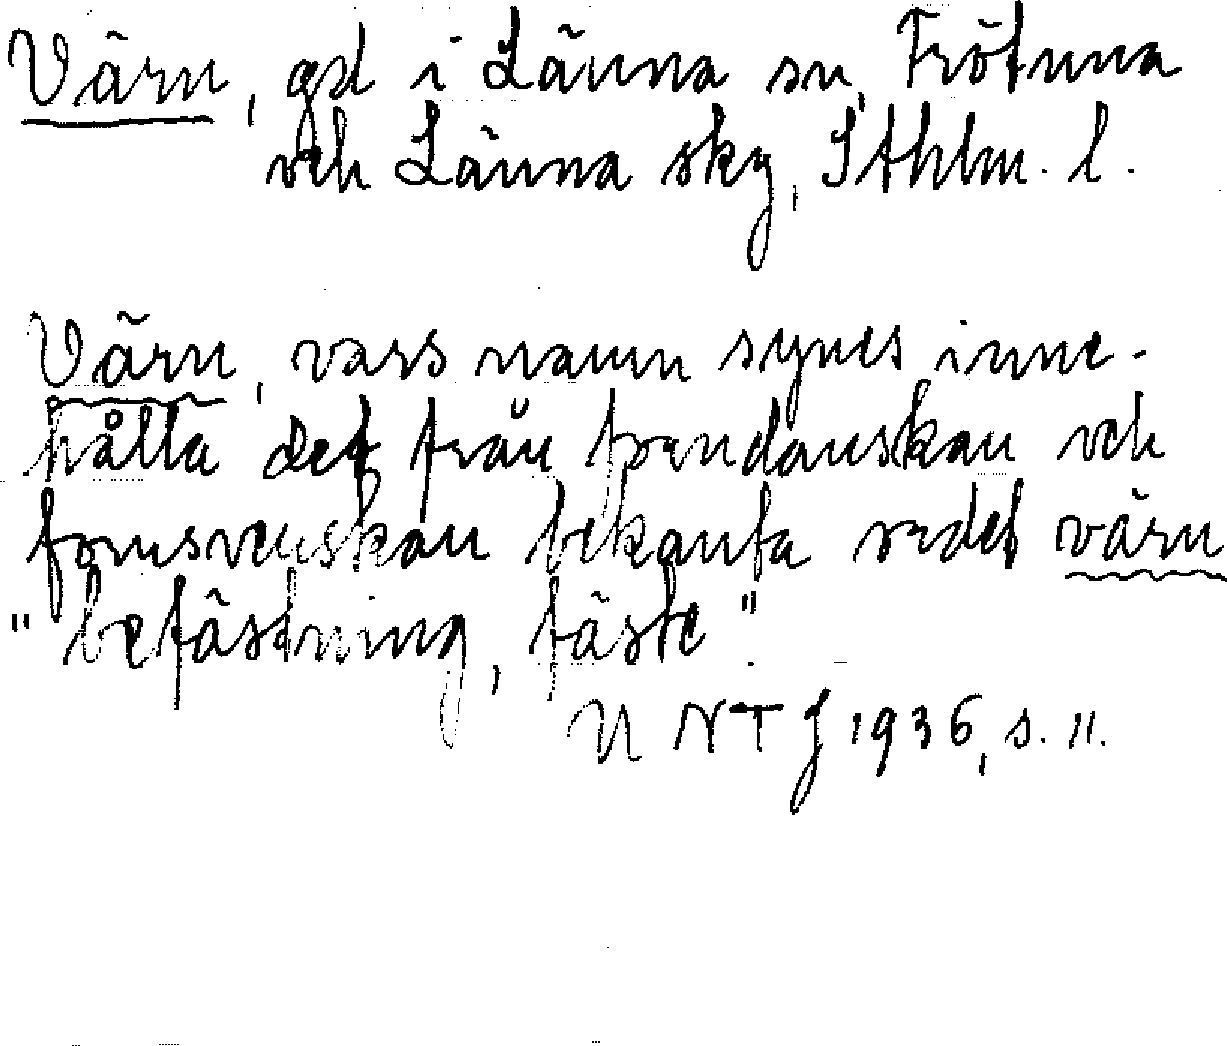 Värn, gd i Länna sn, Frötuna
och Länna sky, Sthlm. l.
Värn, vars namn synes inne-
hålla det från forndanskan och
fornsvenskan bekanta ordet värn
"befästning, fäste".
UNTJ 1936, s. 11.